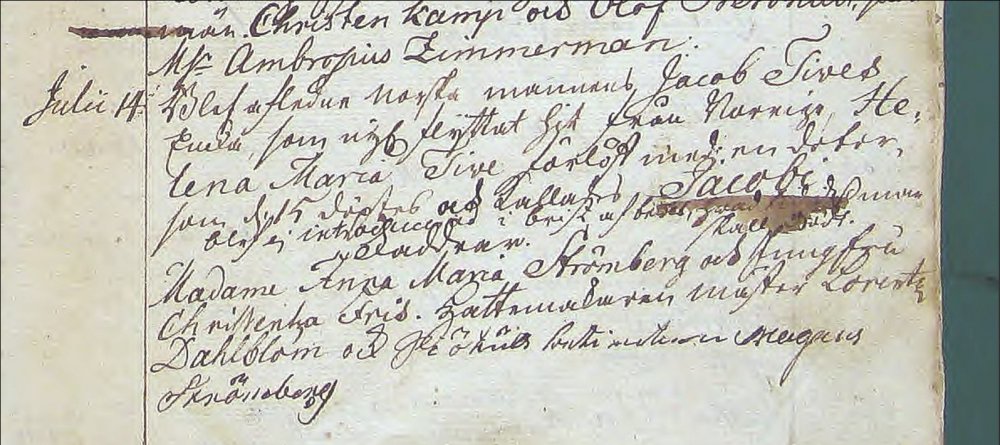 män. Christen Kamp och Olof
Mr Ambrosius Zimmerman.
Julii 14. Blef afledne norska mannens Jacob Tives
Enka, som nyß flyttat hit från Norrige, He-
lena Maria Tive förlöst med en doter,
som d. 15 döptes och kallades Jacobi
blef ej introducerad i brist af man
skall födt.
Faddrar.
Madame Anna Maria Strömberg och Jungfru
Christenha Fris. Hattemakaren mäster Lorentz
Dahlblom och betienten Magnus
Strömberg